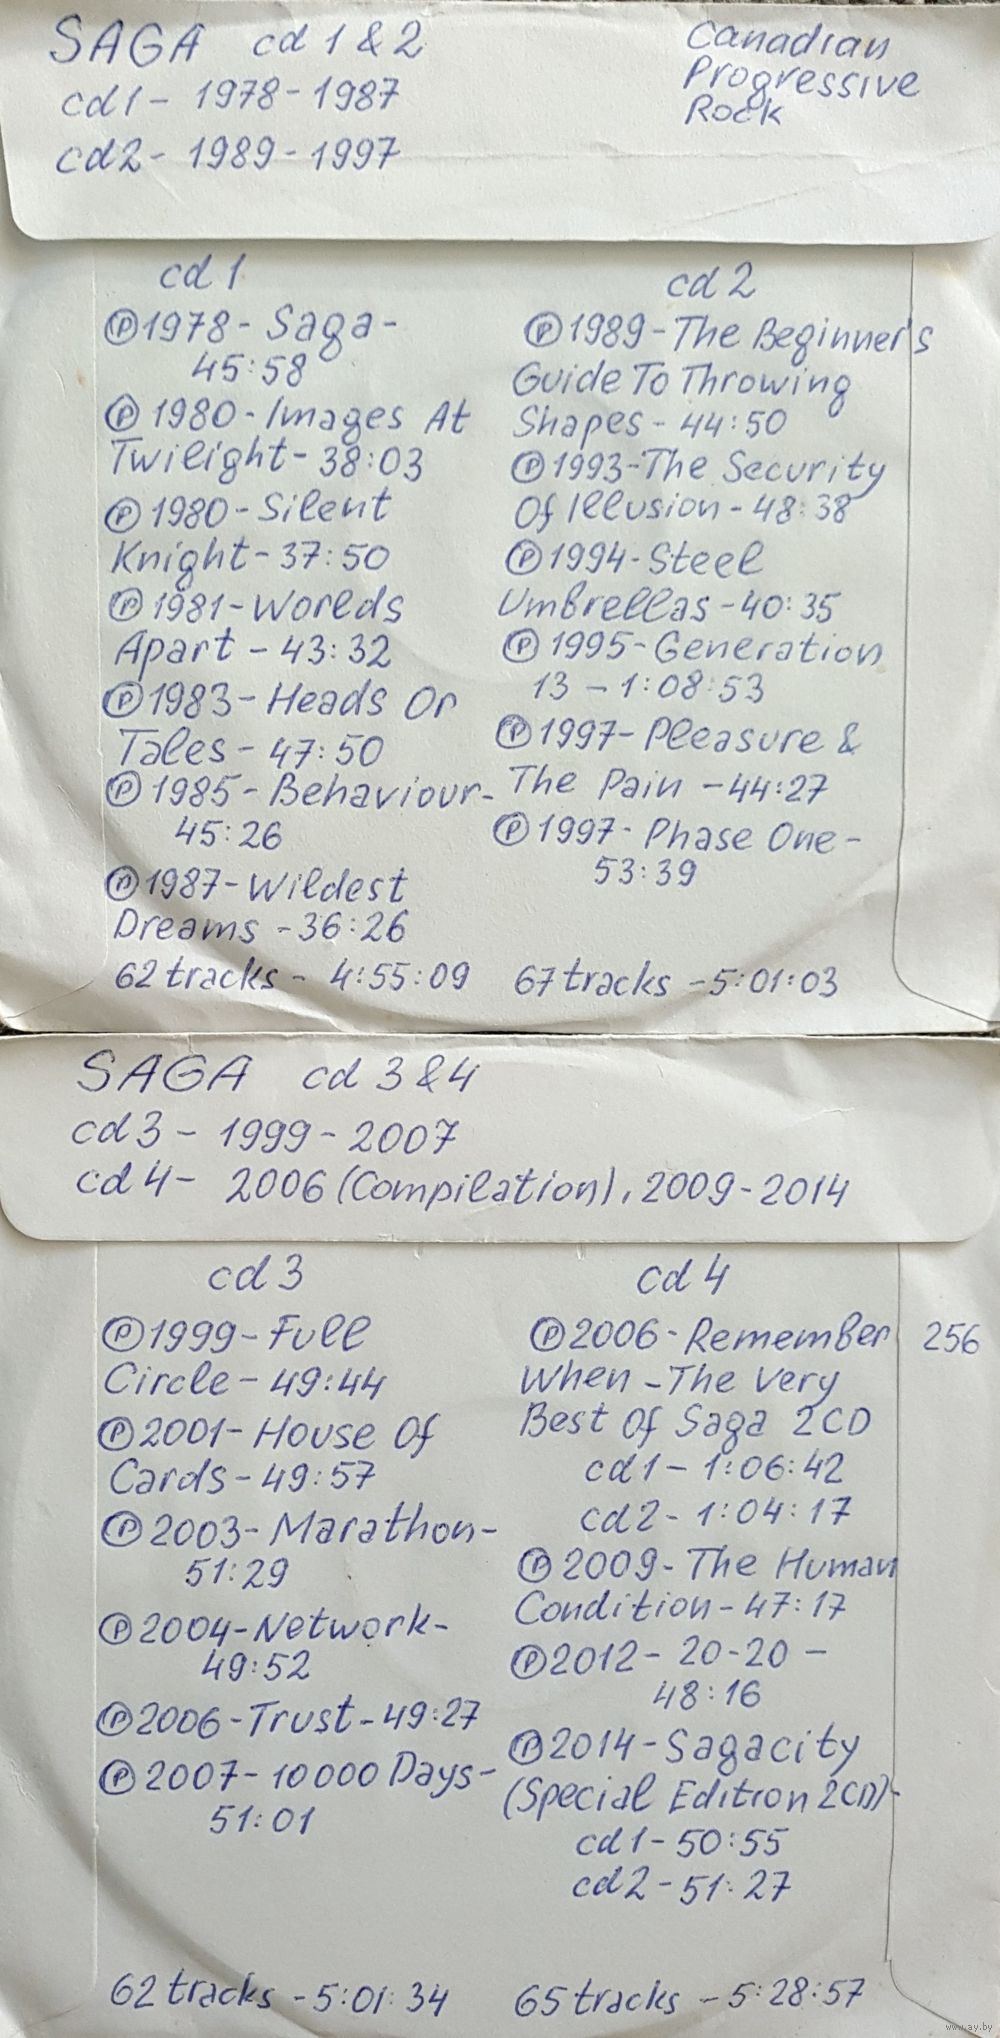 SAGA cd 1 & 2
Canadian
Progressive
Rock
cd1 - 1978 - 1987
cd2 - 1989 - 1997
cd 1
Ⓟ1978 - Saga -
45:58
Ⓟ 1980 - Images At
Twilight - 38:03
Ⓟ 1980 - Silent
Knight - 37:50
Ⓟ 1981 - Worlds
Apart - 43:32
Ⓟ1983 - Heads Or
Tales - 47:50
Ⓟ 1985 - Behaviour -
45:26
Ⓟ1987 - Wildest
Dreams - 36:26
62 tracks - 4:55:09
cd 2
Ⓟ 1989 - The Beginner's
Guide To Throwing
Shapes - 44:50
Ⓟ 1993 - The Security
Of Illusion - 48:38
Ⓟ 1994 - Steel
Umbrellas - 40:35
Ⓟ 1995 - Generation
13 - 1:08:53
Ⓟ 1997 - Pleasure &
The Pain - 44:27
Ⓟ 1997 - Phase One -
53:39
67 tracks - 5:01:03
SAGA cd 3 & 4
cd 3 - 1999 - 2007
cd 4 - 2006 (Compilation), 2009 - 2014
cd 3
Ⓟ1999 - Full
Circle - 49:44
Ⓟ2001 - House Of
Cards - 49:57
Ⓟ 2003 - Marathon -
51:29
Ⓟ2004 - Network -
49:52
Ⓟ2006 - Trust - 49:27
Ⓟ 2007 - 10000 Days -
51:01
62 tracks - 5:01:34
cd 4
Ⓟ2006 - Remember
When - The Very
Best Of Saga 2CD
cd1 - 1:06:42
cd2 - 1:04:17
Ⓟ 2009 - The Human
Condition - 47:17
Ⓟ2012 - 20-20 -
48:16
Ⓟ2014 - Sagacity
(Special Edition 2CD) -
cd1 - 50:55
cd2 - 51:27
65 tracks - 5:28:57
256
www.ay.by